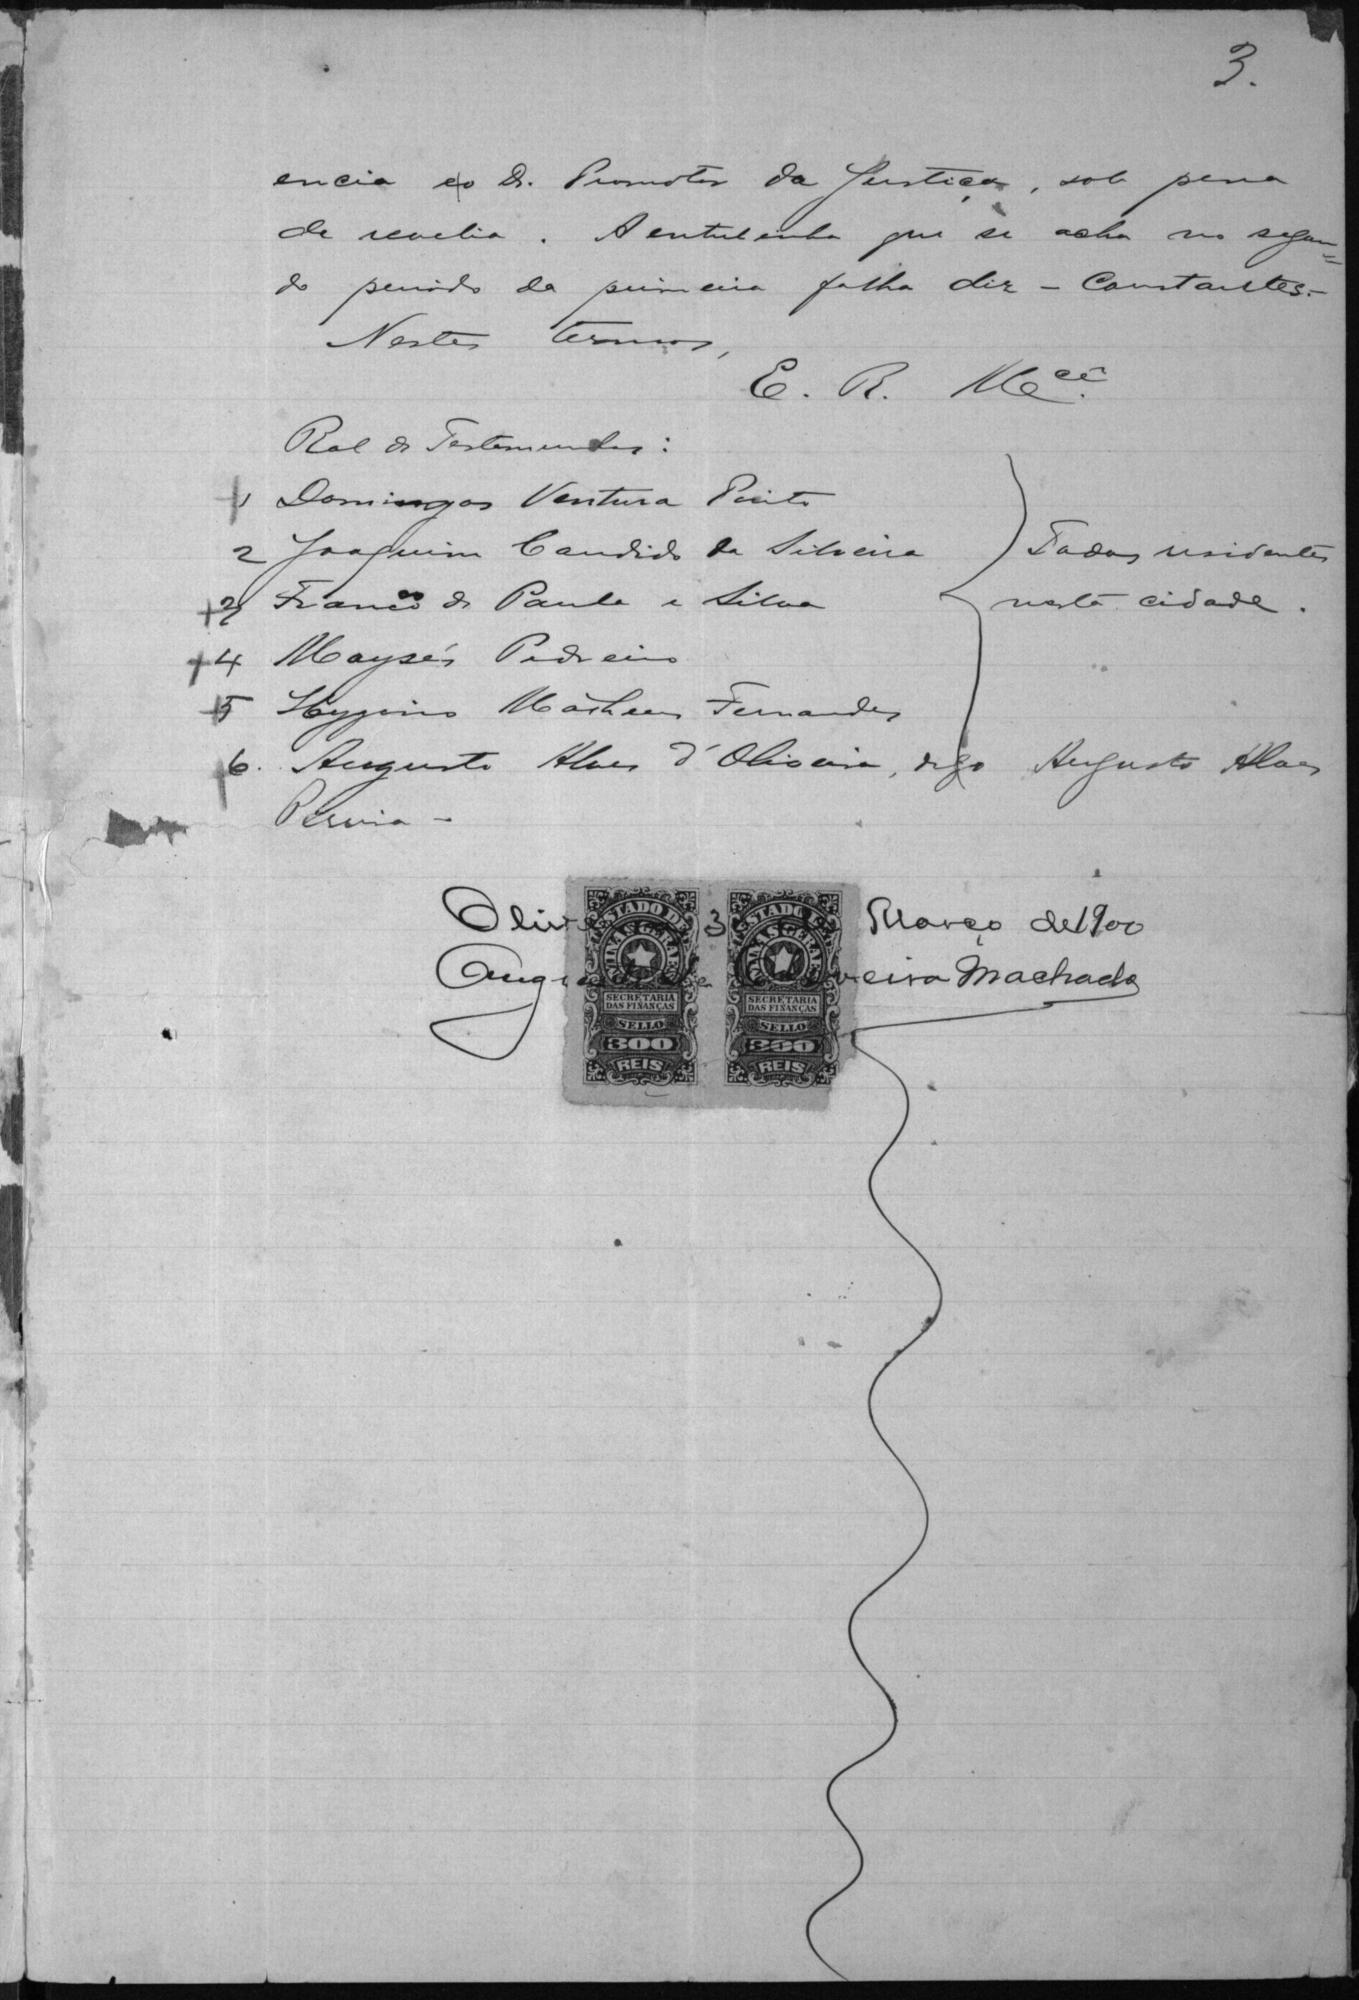 3.
encia e o Dr. Promotor da Justiça, sob pena
de revelia. A entrelinha que se acha no segun=
do periodo da primeira folha diz - Constantes.-
Nestes termos,
E. R. M.cê
Rol de Testemunhas:
1 Domingos Ventura Pinto
2 Joaquim Candido da Silveira Todos residentes
3 Franco de Paula e Silva nesta cidade.
4 Moysés Pedreiro
5 Hygino Matheus Fernandes
6. Augusto Alves d'Oliveira, digo Augusto Alves
Pereira -
3 Março de 1900
Machado
ESTADO DE MINAS GERAES
SECRETARIA DAS FINANÇAS
SELLO
300
REIS
ESTADO DE MINAS GERAES
SECRETARIA DAS FINANÇAS
SELLO
REIS